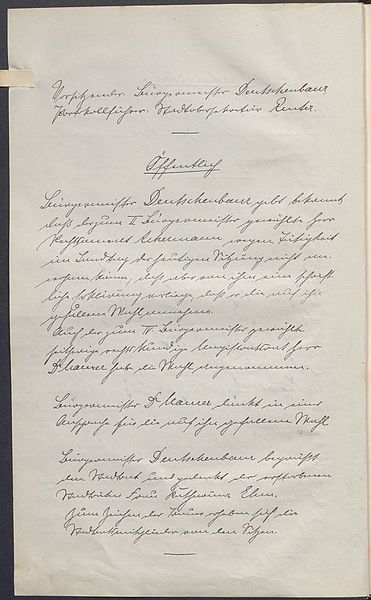 Vorsitzender: Bürgermeister Deutschenbaur
Protokollführer: Stadtobersekretär Reuter.
Öffentlich
Bürgermeister Deutschenbaur gibt bekannt,
daß der zum II. Bürgermeister gewählte Herr
Rechtsanwalt Ackermann wegen Tätigkeit
im Landtag der heutigen Sitzung nicht an-
wohnen könne, daß aber von ihm eine schrift-
liche Erklärung vorliege, daß er die auf ihn
gefallene Wahl annehme.
Auch der zum IV. Bürgermeister gewählte
seitherige rechtskundige Magistratsrat Herr
Dr Maurer habe die Wahl angenommen.
Bürgermeister Dr Maurer dankt in einer
Ansprache für die auf ihn gefallene Wahl
Bürgermeister Deutschenbaur begrüßt
den Stadtrat und gedenkt der verstorbenen
Stadträtin Frau
Zum Zeichen der Trauer erheben sich die
Stadtratsmitglieder von den Sitzen.